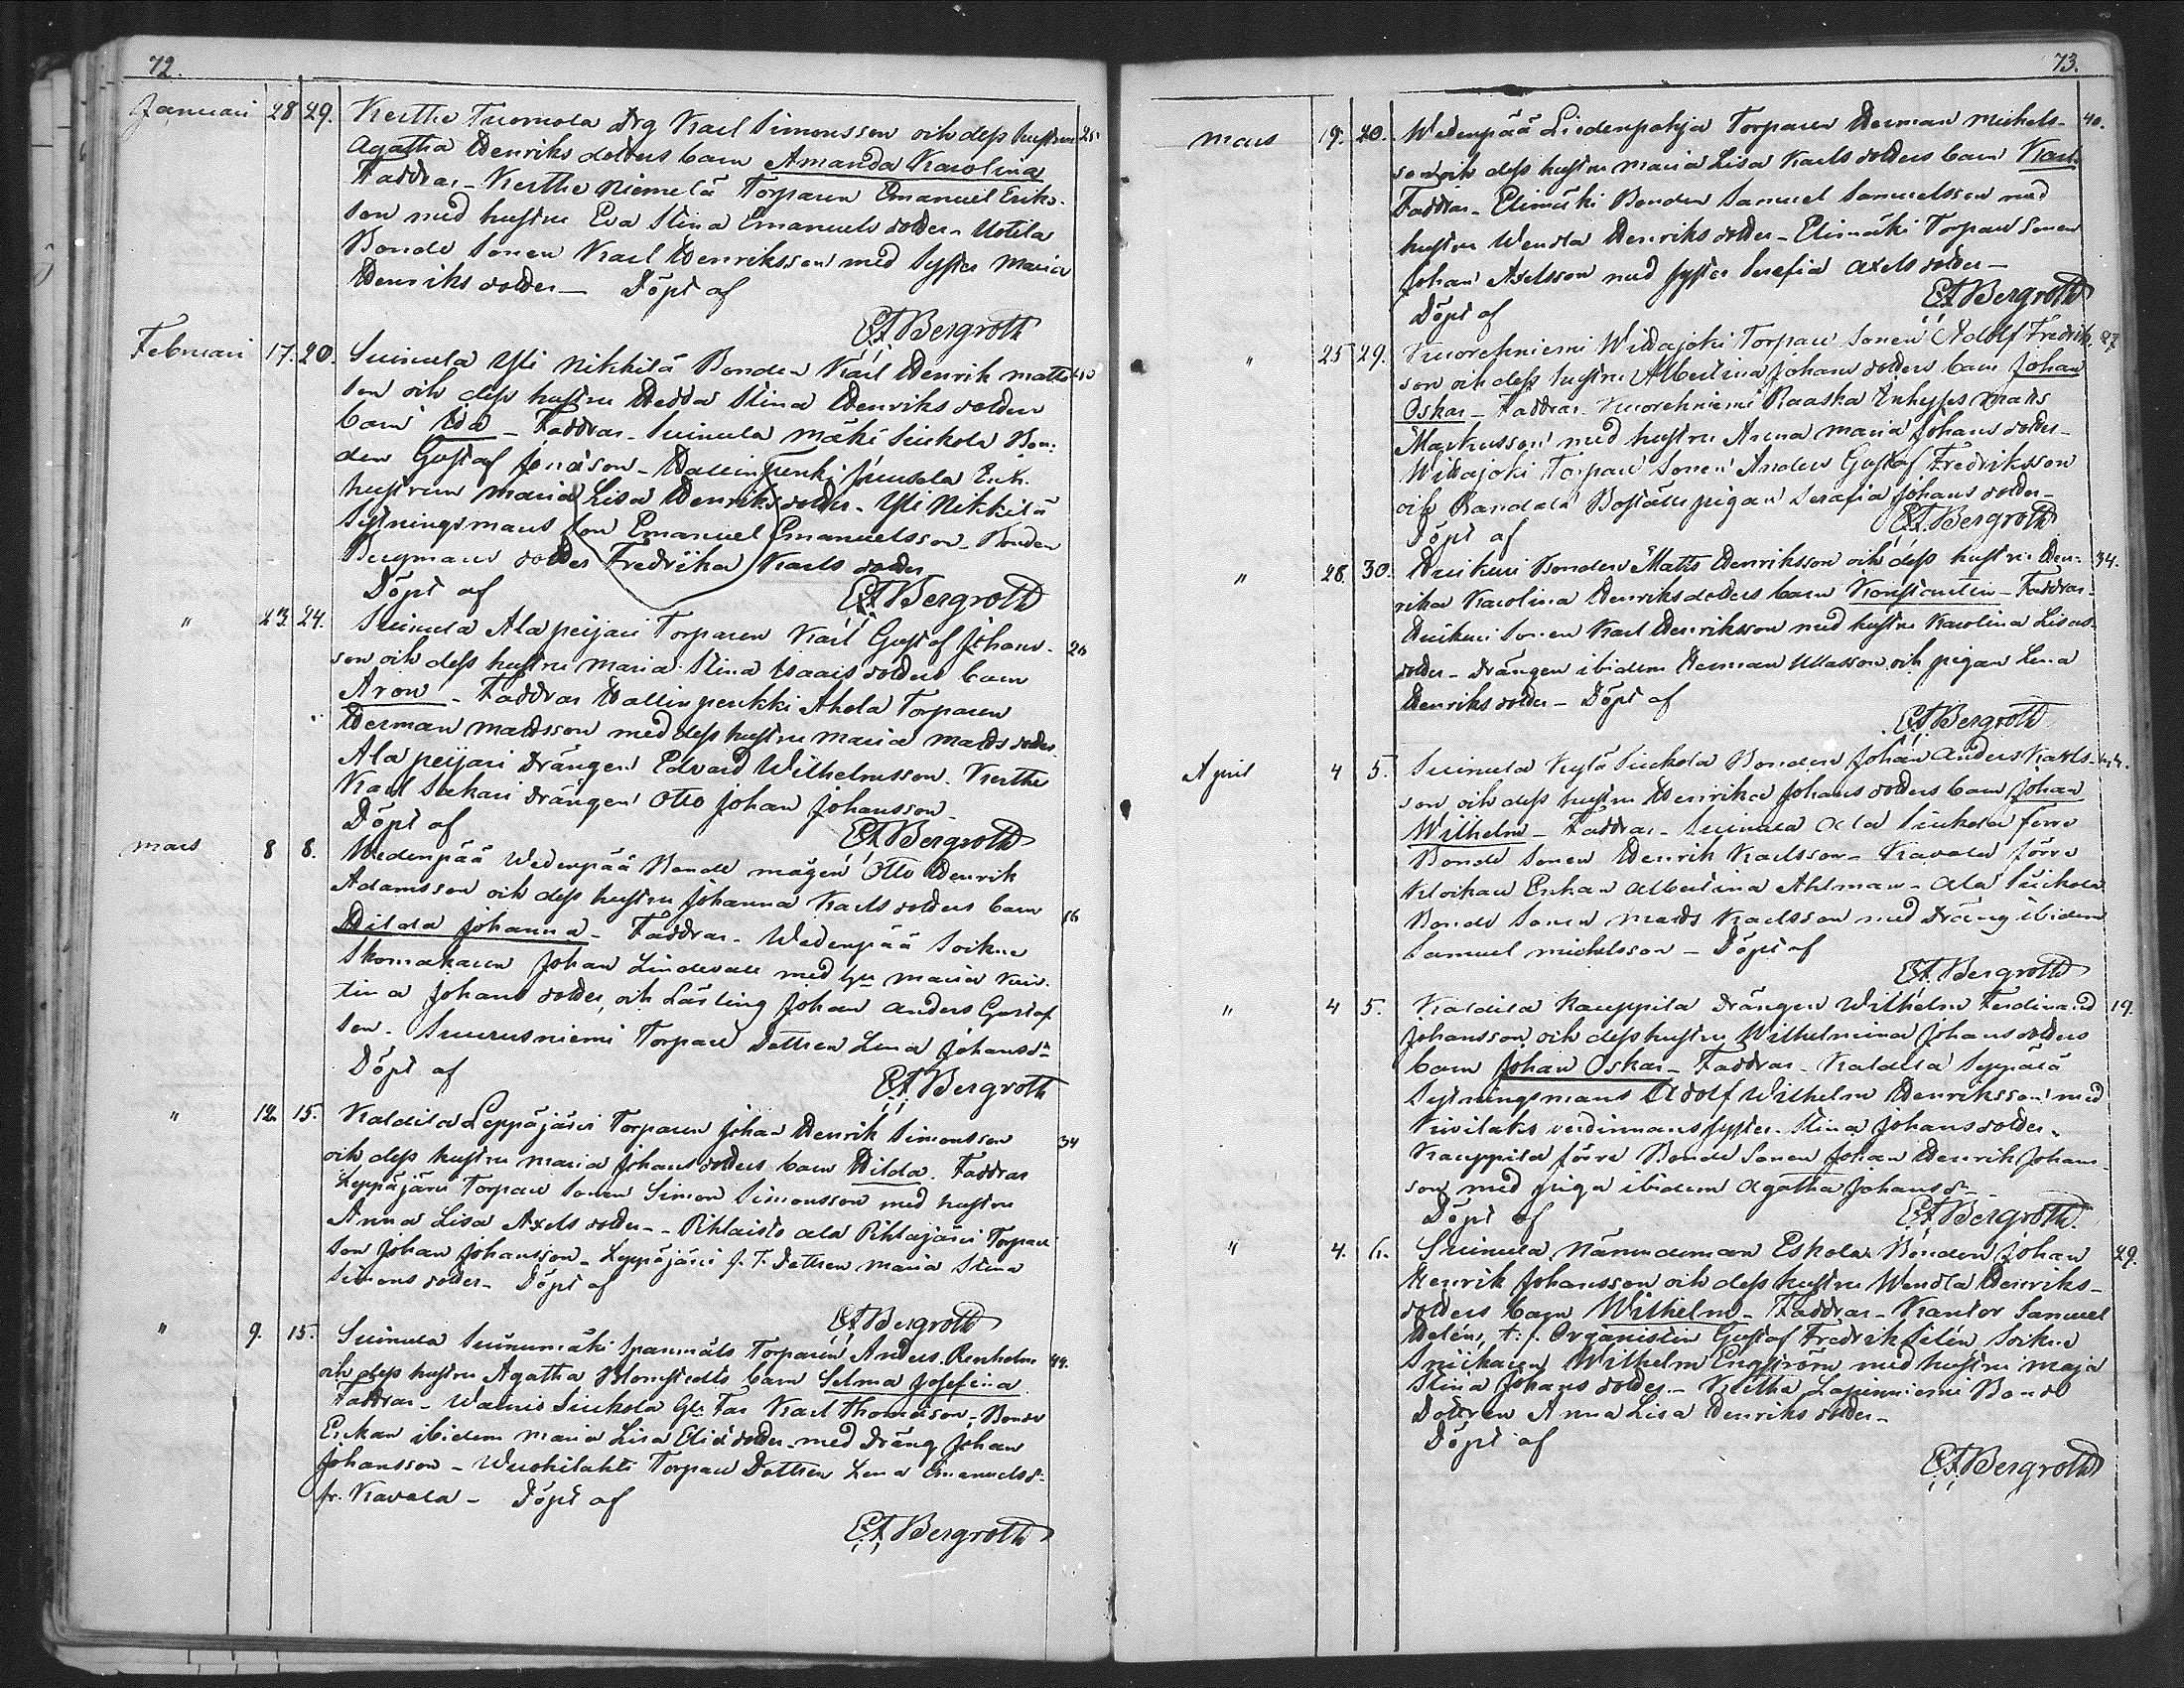 72.
Januari 28 29. Kerthe Tuomola Drg Karl Simonsson och dess hustru 25
Agatha Henriks dotters barn Amanda Karolina
Faddrar - Kerthe Niemelä Torparen Emanuel Eriks-
son med hustru Eva Stina Emanuels dotter - Uotila
Bonde Sonen Karl Henriksson med Syster Maria
Henriks dotter - Döpt af
EA Bergroth
Februari 17. 20. Suinula Yli Nikkilä Bonden Karl Henrik Matts
son och dess hustru Hedda Stina Henriks dotters
barn Ida - Faddrar - Suinula Mäki Siukola Bon-
den Gustaf Jonasson - Hallinpenki Juusela Enk.
hustrun Maria Lisa Henriks dotter - Yli Nikkilä
Sytningsmans son Emanuel Emanuelsson - Bonden
Bergmans dotter Fredrika Karls dotter
Döpt af EA Bergroth
" 23 24. Suinula Alapeijari Torparen Karl Gustaf Johans- 26
son och dess hustru Maria Stina Isaacs dotters barn
Aron - Faddrar Hallinpenkki Ahola Torparen
Herman Mattsson med dess hustru Maria Matts dotter
Alapeijari Drängen Edvard Wilhelmsson - Kerthe
Karl Sakari drängen Otto Johan Johansson -
Döpt af EA Bergroth
Mars 8 8. Wedenpää Wedenpää Bonde mågen Otto Henrik
Adamsson och dess hustru Johanna Karls dotters barn
Hilda Johanna - Faddrar - Wedenpää Sockne 16
Skomakaren Johan Lindevall med hu Maria Kris-
tina Johans dotter, och Lärling Johan Anders Gustaf
son - Suurusniemi Torpare Dottren Lena Johansdr
Döpt af EA Bergroth
" 12. 15. Kaldila Leppäjärvi Torparen Johan Henrik Simonsson 34
och dess hustru Maria Johans dotters barn Hilda. Faddrar
Leppäjärvi Torpare Sonen Simon Simonsson med hustru
Anna Lisa Axels dotter - Pihlaisto ala Pihlajärvi Torpare
son Johan Johansson - Leppäjärvi f. T. dottren Maria Stina
Simons dotter - Döpt af
EA Bergroth
" 9. 15. Suinula Suinunmäki Torparen Anders Renholm 44.
och dess hustru Agatha Blomstedts barn Selma Josefina
Faddrar - Siukola Gl. Far Karl Thomasson - Bonde
Enkan ibidem Maria Lisa Elias dotter med Dräng Johan
Johansson - Wuokilahti Torpare Dottren Lena Emanuelsdr
fr. Kavala - Döpt af
EA Bergroth
73.
Mars 19. 20. Wedenpää Liedenpohja Torparen Herman Michels- 40.
son och dess hustru Maria Lisa Karls dotters barn Karl
Faddrar - Elimäki Bonden Samuel Samuelsson med
hustru Wendla Henriks dotter - Elimäki Torpare Sonen
Johan Axelsson med syster Serafia Axels dotter -
Döpt af EA Bergroth
" 25 29. Kuorehniemi Widajoki Torpare Sonen Adolf Fredrik- 27
son och dess hustru Albertina Johans dotters barn Johan
Oskar - Faddrar - Kuorehniemi Raaska Inhyses Matts
Markusson med hustru Anna Maria Johans dotter -
Widajoki Torpare Sonen Anders Gustaf Fredriksson
och Boställs pigan Serafia Johans dotter -
Döpt af EA Bergroth
" 28. 30. Bonden Matts Henriksson och dess hustru Hen- 34.
rika Karolina Henriksdotters barn Konstantin - Faddrar -
Sonen Karl Henriksson med hustru Karolina Lisas
dotter - Drängen ibidem Herman och pigan Lena
Henriks dotter - Döpt af
EA Bergroth
April 4 5. Suinula Kylä Siukola Bonden Johan Anders Karls- 44.
son och dess hustru Henrika Johans dotters barn Johan
Wilhelm - Faddrar - Suinula Ala Siukola förre
Bonde Sonen Henrik Karlsson - Kavala förre
Klockare Enkan Albertina Ahlman - Ala Siukola
Bonde Sonen Matts Karlsson med Dräng ibidem
Samuel Michelsson - Döpt af
EA Bergroth
" 4 5. Kaldila Kauppila Drängen Wilhelm Ferdinand 19.
Johansson och dess hustru Wilhelmina Johans dotters
barn Johan Oskar - Faddrar - Kaldila Seppälä
Sytningsmans Adolf Wilhelm Henriksson med
Kivilaks syster - Stina Johans dotter -
Kauppila förre Bonde Sonen Johan Henrik Johans-
son med piga ibidem Agatha Johansdr -
Döpt af EA Bergroth
" 4. 6. Suinula Nämndeman Eskola Bonden Johan 29.
Henrik Johansson och dess hustru Wendla Henriks-
dotters barn Wilhelm - Faddrar - Kantor Samuel
Helén, t. f. Organisten Gustaf Fredrik Silén Sockne
Snickaren Wilhelm Engström med hustru Maja
Stina Johans dotter - Kertha Lapinniemi Bonde
Dottren Anna Lisa Henriks dotter -
Döpt af
EA Bergroth